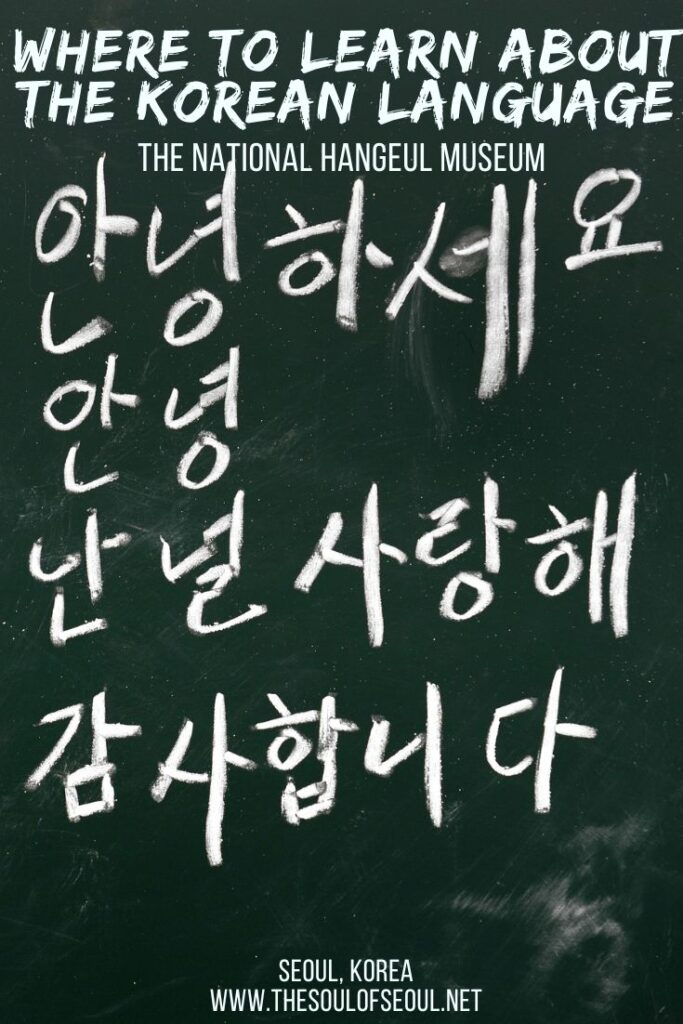 WHERE TO LEARN ABOUT
THE KOREAN LANGUAGE
THE NATIONAL HANGEUL MUSEUM
안녕하세요
안녕
난 널 사랑해
감사합니다
SEOUL, KOREA
WWW.THESOULOFSEOUL.NET